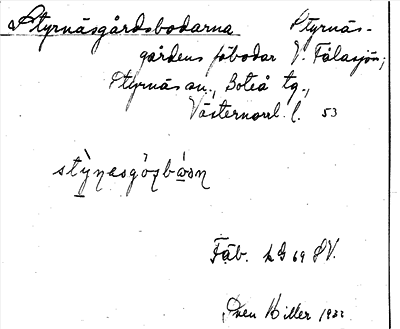 Styrnäsgårdsbodarna Styrnäs-
gårdens fäbodar V. Fälasjön,
Styrnäs sn., Boteå tg.,
Västernorrl. l. 53
Fäb. 69 SV.
Sven Hiller 1932